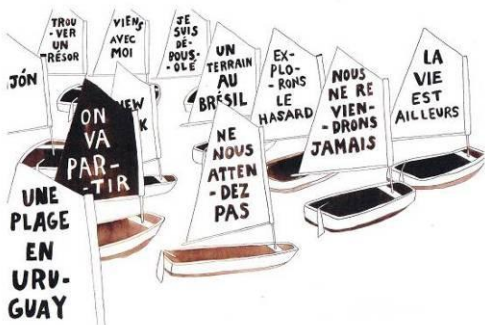 TROU
-VER
UN
TRÉSOR
VIENS
AVEC
MOI
JE
SUIS
DÉ-
BOUS-
SOLÉ
UN
TERRAIN
AU
BRÉSIL
EX-
PLO-
RONS
LE
HASARD
NOUS
NE RE
VIEN-
DRONS
JAMAIS
LA
VIE
EST
AILLEURS
JÓN
ON
VA
PAR-
-TIR
NEW
K
NE
NOUS
ATTEN
-DEZ
PAS
UNE
PLAGE
EN
URU-
GUAY